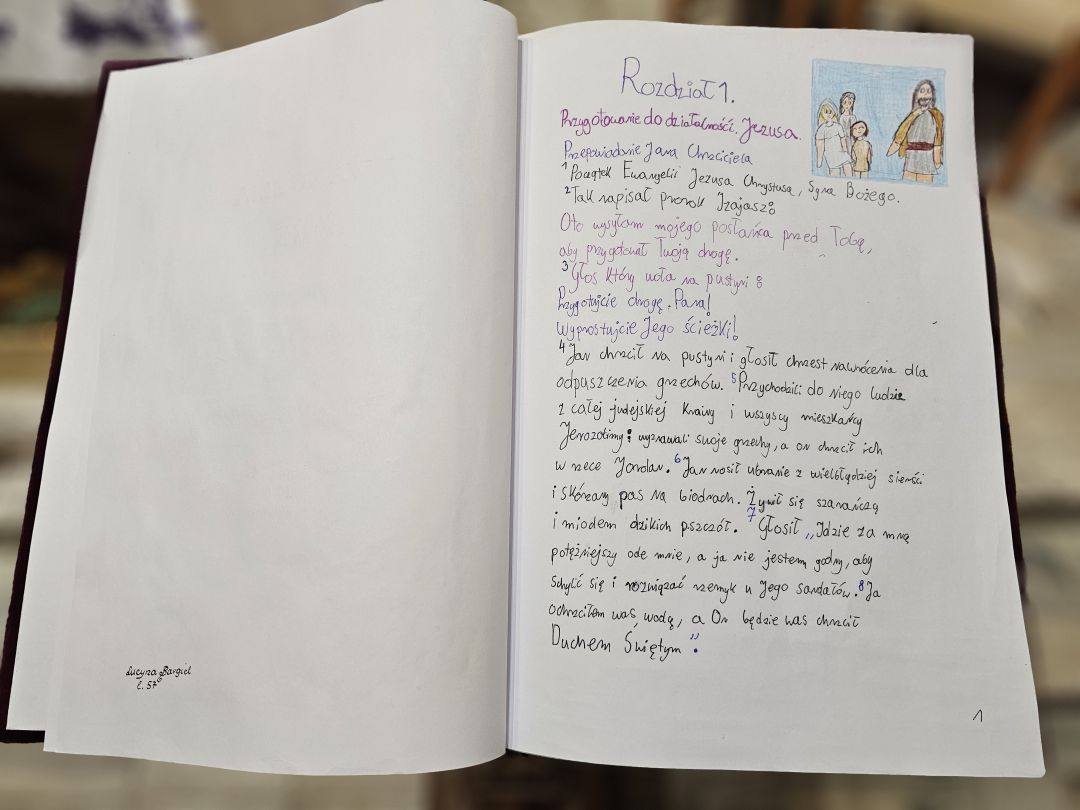 Lucyna Bargieł
l. 57
Rozdział 1.
Przygotowanie do działalności Jezusa.
Przepowiadanie Jana Chrzciciela
1 Początek Ewangelii Jezusa Chrystusa, Syna Bożego.
2 Tak napisał prorok Izajasz:
Oto wysyłam mojego posłańca przed Tobą,
aby przygotował Twoją drogę.
3 Głos który woła na pustyni:
Przygotujcie drogę Pana!
Wyprostujcie Jego ścieżki!
4 Jan chrzcił na pustyni i głosił chrzest nawrócenia dla
odpuszczenia grzechów. 5 Przychodzili do niego ludzie
z całej judejskiej krainy i wszyscy mieszkańcy
Jerozolimy; wyznawali swoje grzechy, a on chrzcił ich
w rzece Jordan. 6 Jan nosił ubranie z wielbłądziej sierści
i skórzany pas na biodrach. Żywił się szarańczą
i miodem dzikich pszczół. 7 Głosił „Idzie za mną
potężniejszy ode mnie, a ja nie jestem godny, aby
schylić się i rozwiązać rzemyk u Jego sandałów. 8 Ja
ochrzciłem was wodą, a On będzie was chrzcił
Duchem Świętym".
1